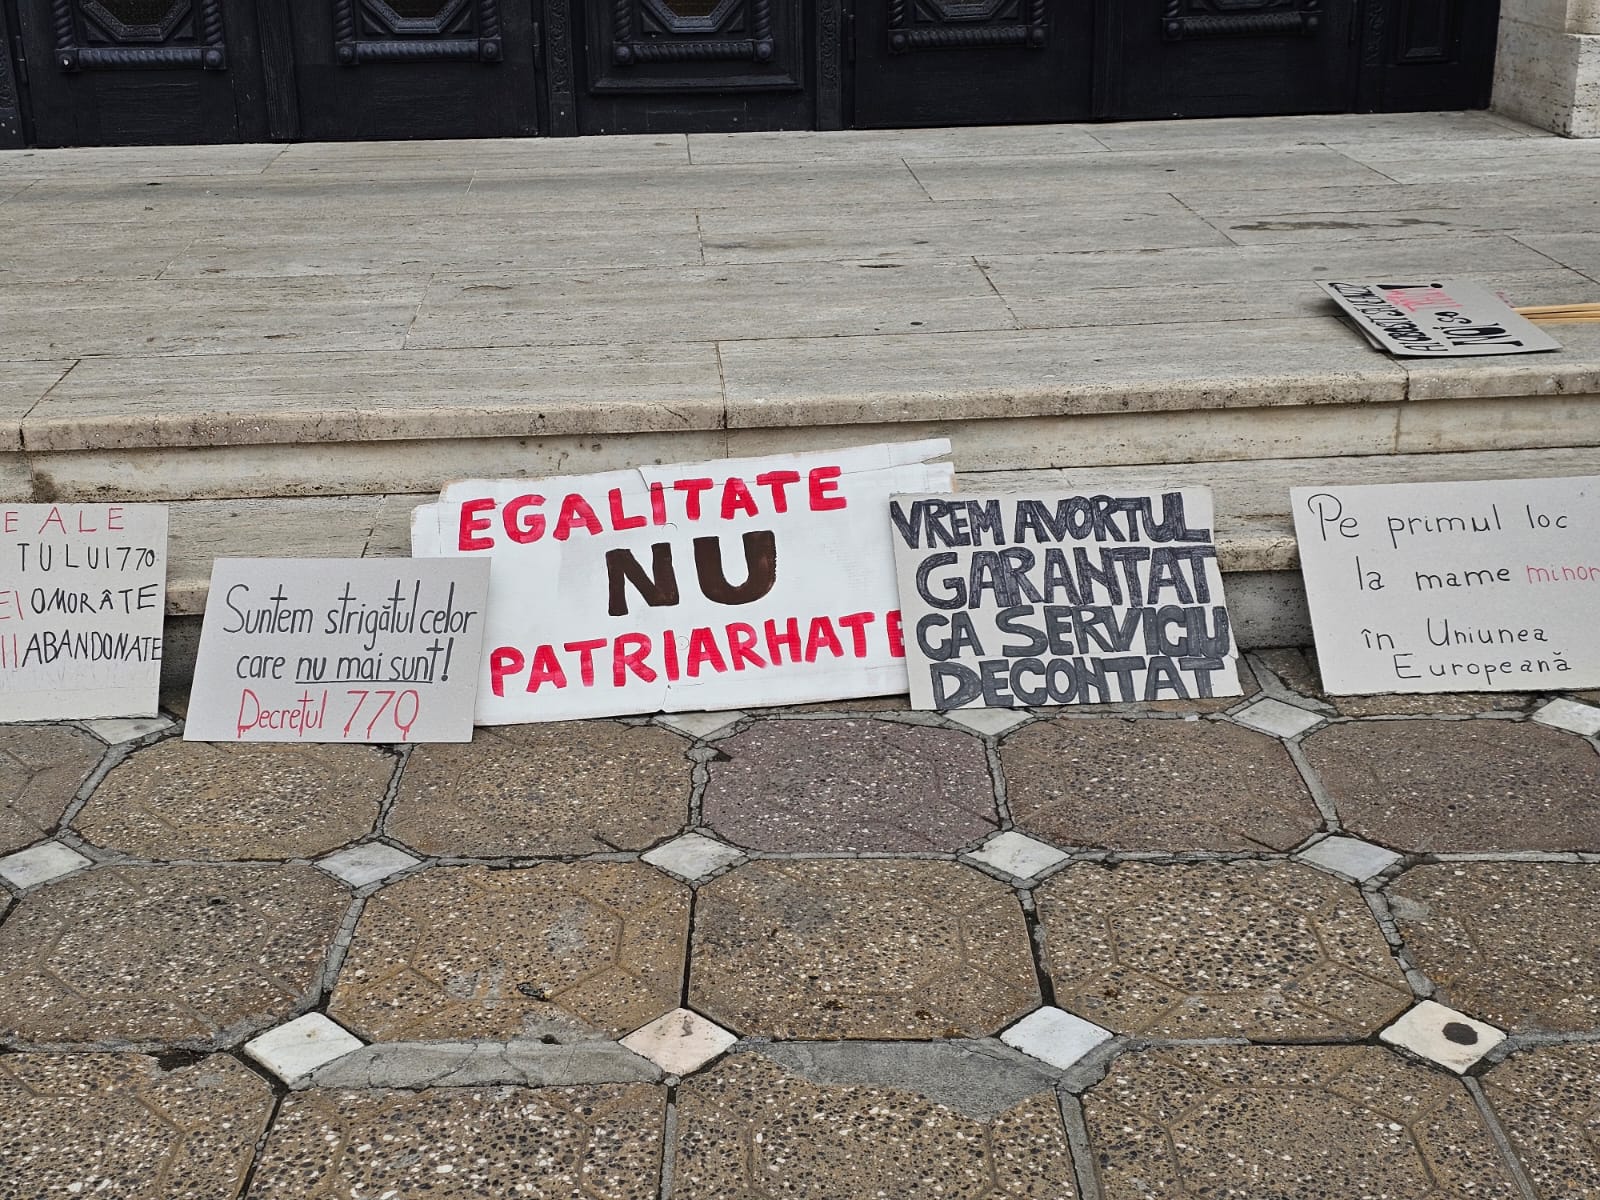 E ALE
TULUI 770
EI OMORÂTE
II ABANDONATE
Suntem strigătul celor
care nu mai sunt!
Decrețul 770
EGALITATE
NU
PATRIARHATE
VREM AVORTUL
GARANTAT
CA SERVICIU
DECONTAT
Pe primul loc
la mame minor
în Uniunea
Europeană